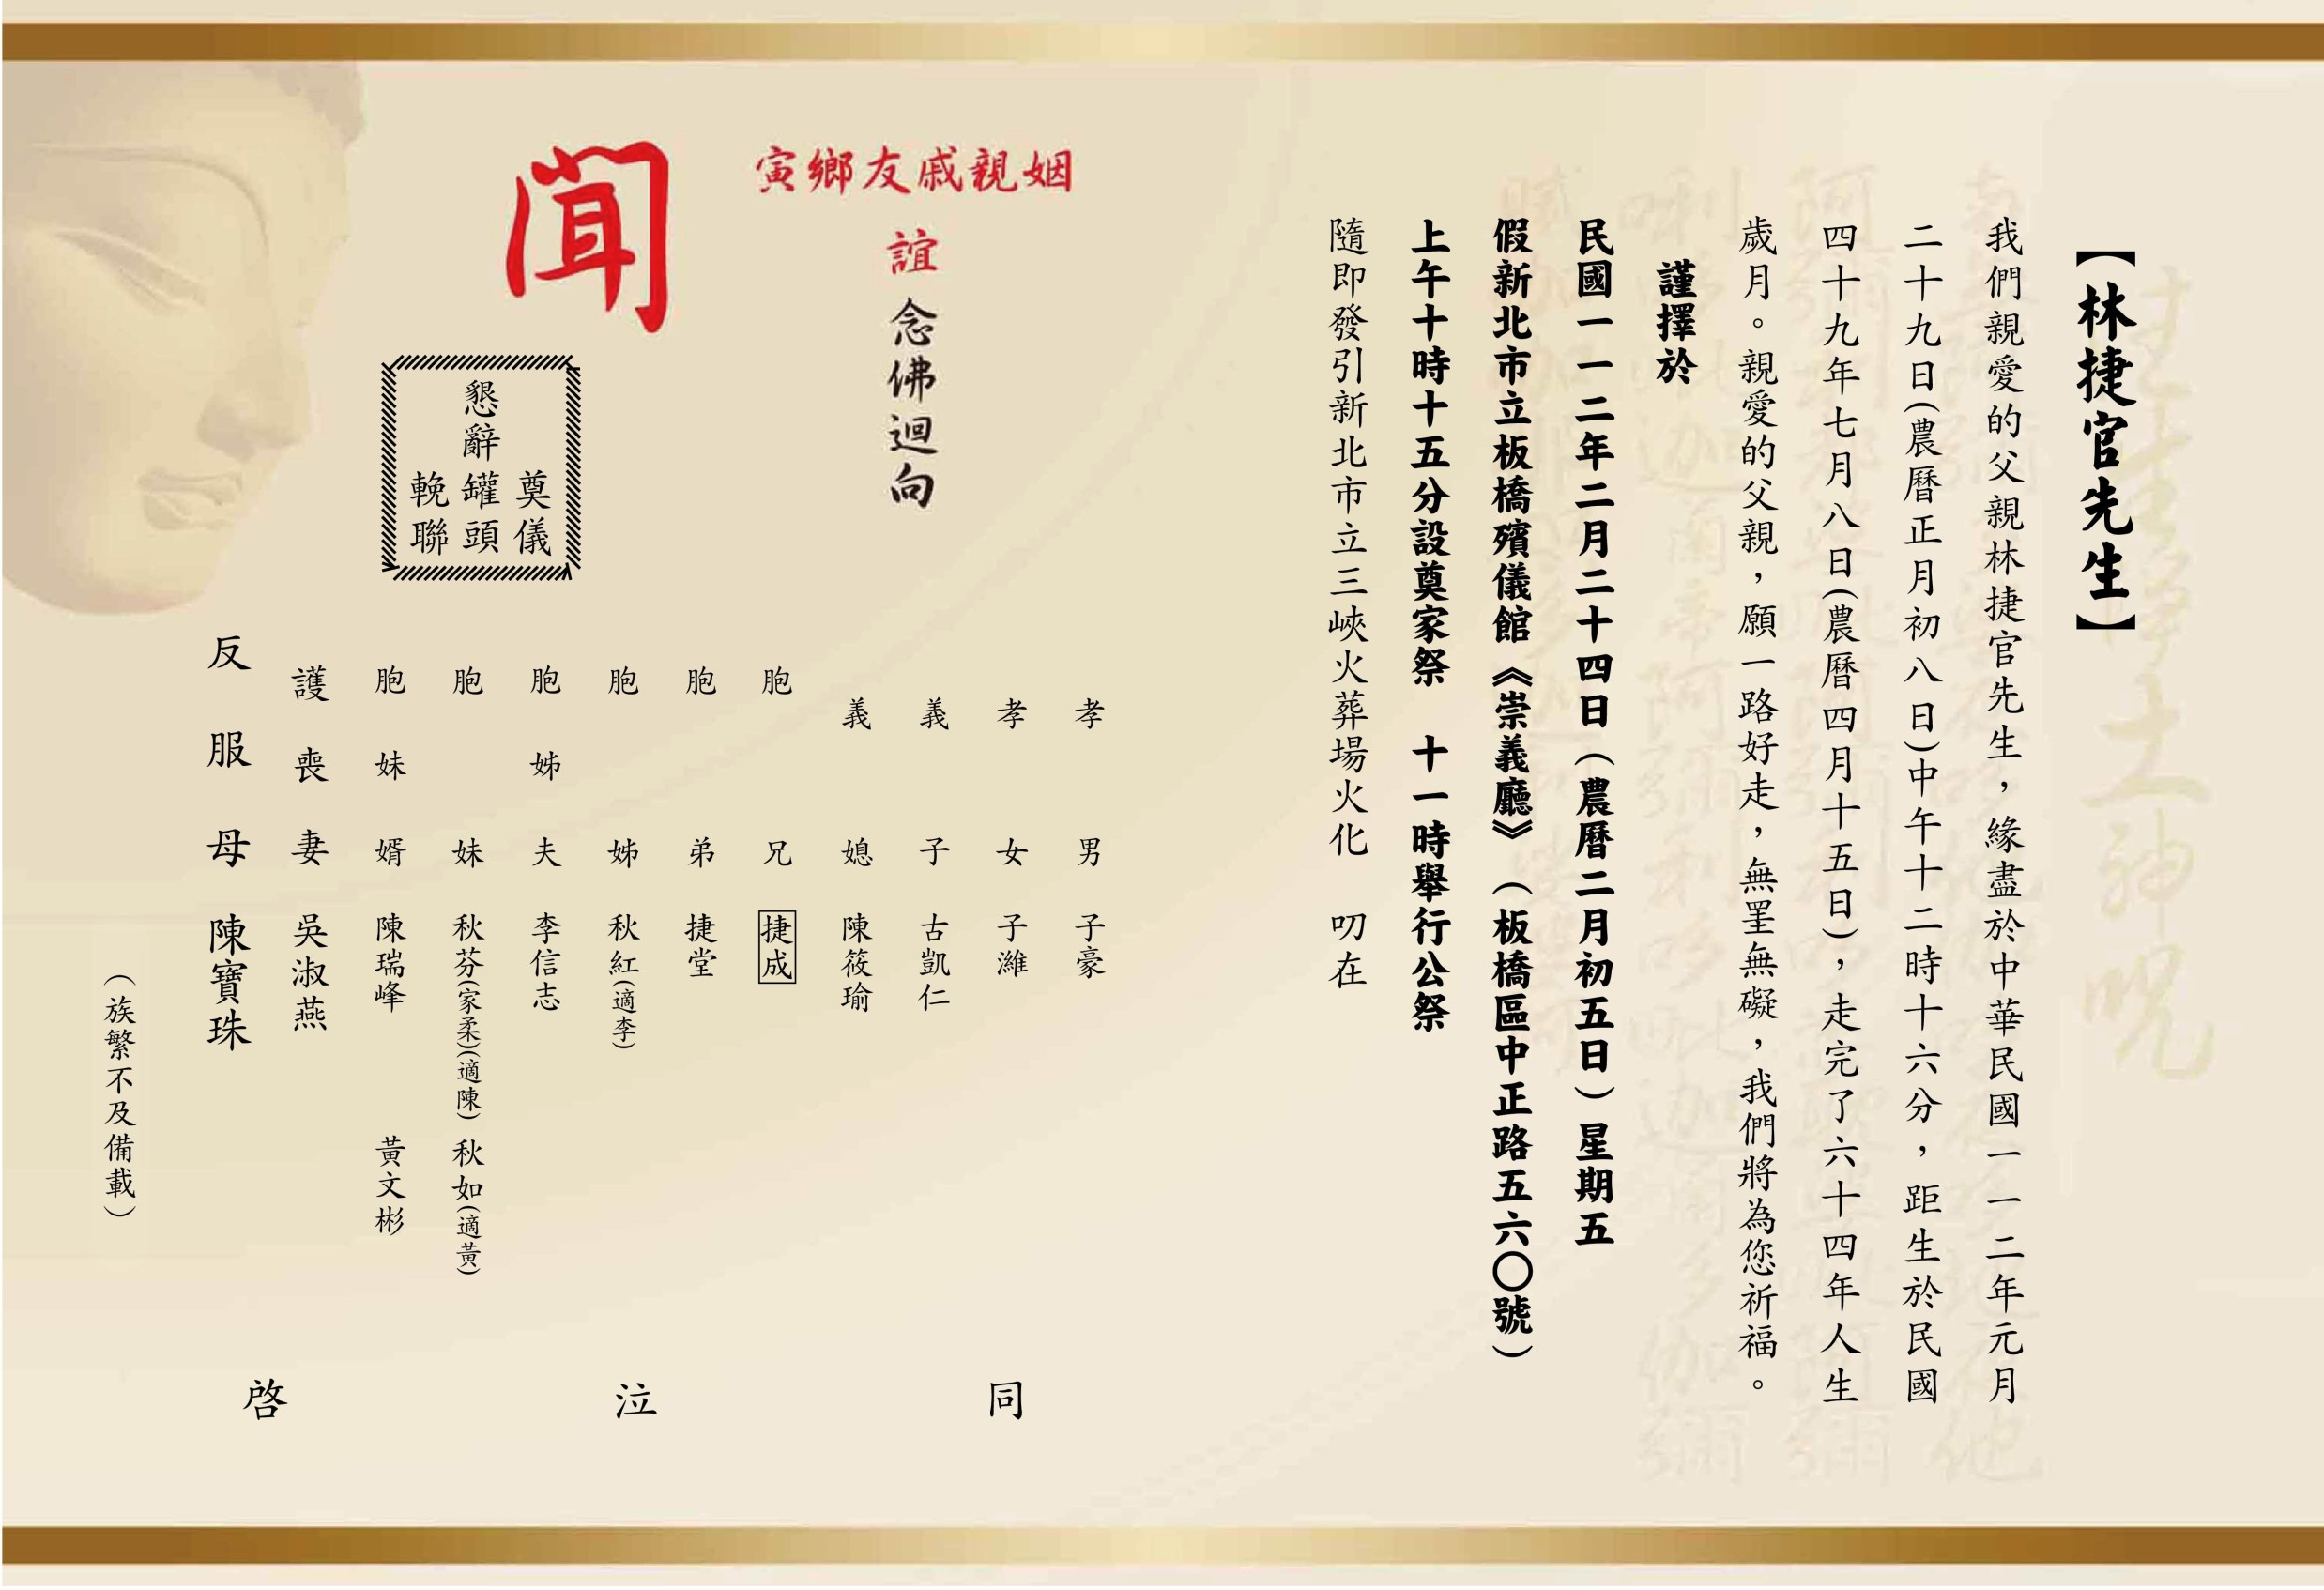 【林捷官先生】
我們親愛的父親林捷官先生，緣盡於中華民國一一二年元月
二十九日(農曆正月初八日)中午十二時十六分，距生於民國
四十九年七月八日(農曆四月十五日)，走完了六十四年人生
歲月。親愛的父親，願一路好走，無罣無礙，我們將為您祈福。
謹擇於
民國一一二年二月二十四日（農曆二月初五日）星期五
假新北市立板橋殯儀館《崇義廳》（板橋區中正路五六〇號）
上午十時十五分設奠家祭　十一時舉行公祭
隨即發引新北市立三峽火葬場火化　叨在
姻親戚友鄉寅
誼念佛迴向
聞
懇辭
奠儀
罐頭
輓聯
孝男 子豪
孝女 子濰
義子 古凱仁
義媳 陳筱瑜
胞兄 捷成
胞弟 捷堂
胞姊 秋紅(適李)
胞姊夫 李信志
胞妹 秋芬(家柔)(適陳) 秋如(適黃)
胞妹婿 陳瑞峰 黃文彬
護喪妻 吳淑燕
反服母 陳寶珠
（族繁不及備載）
同泣啓